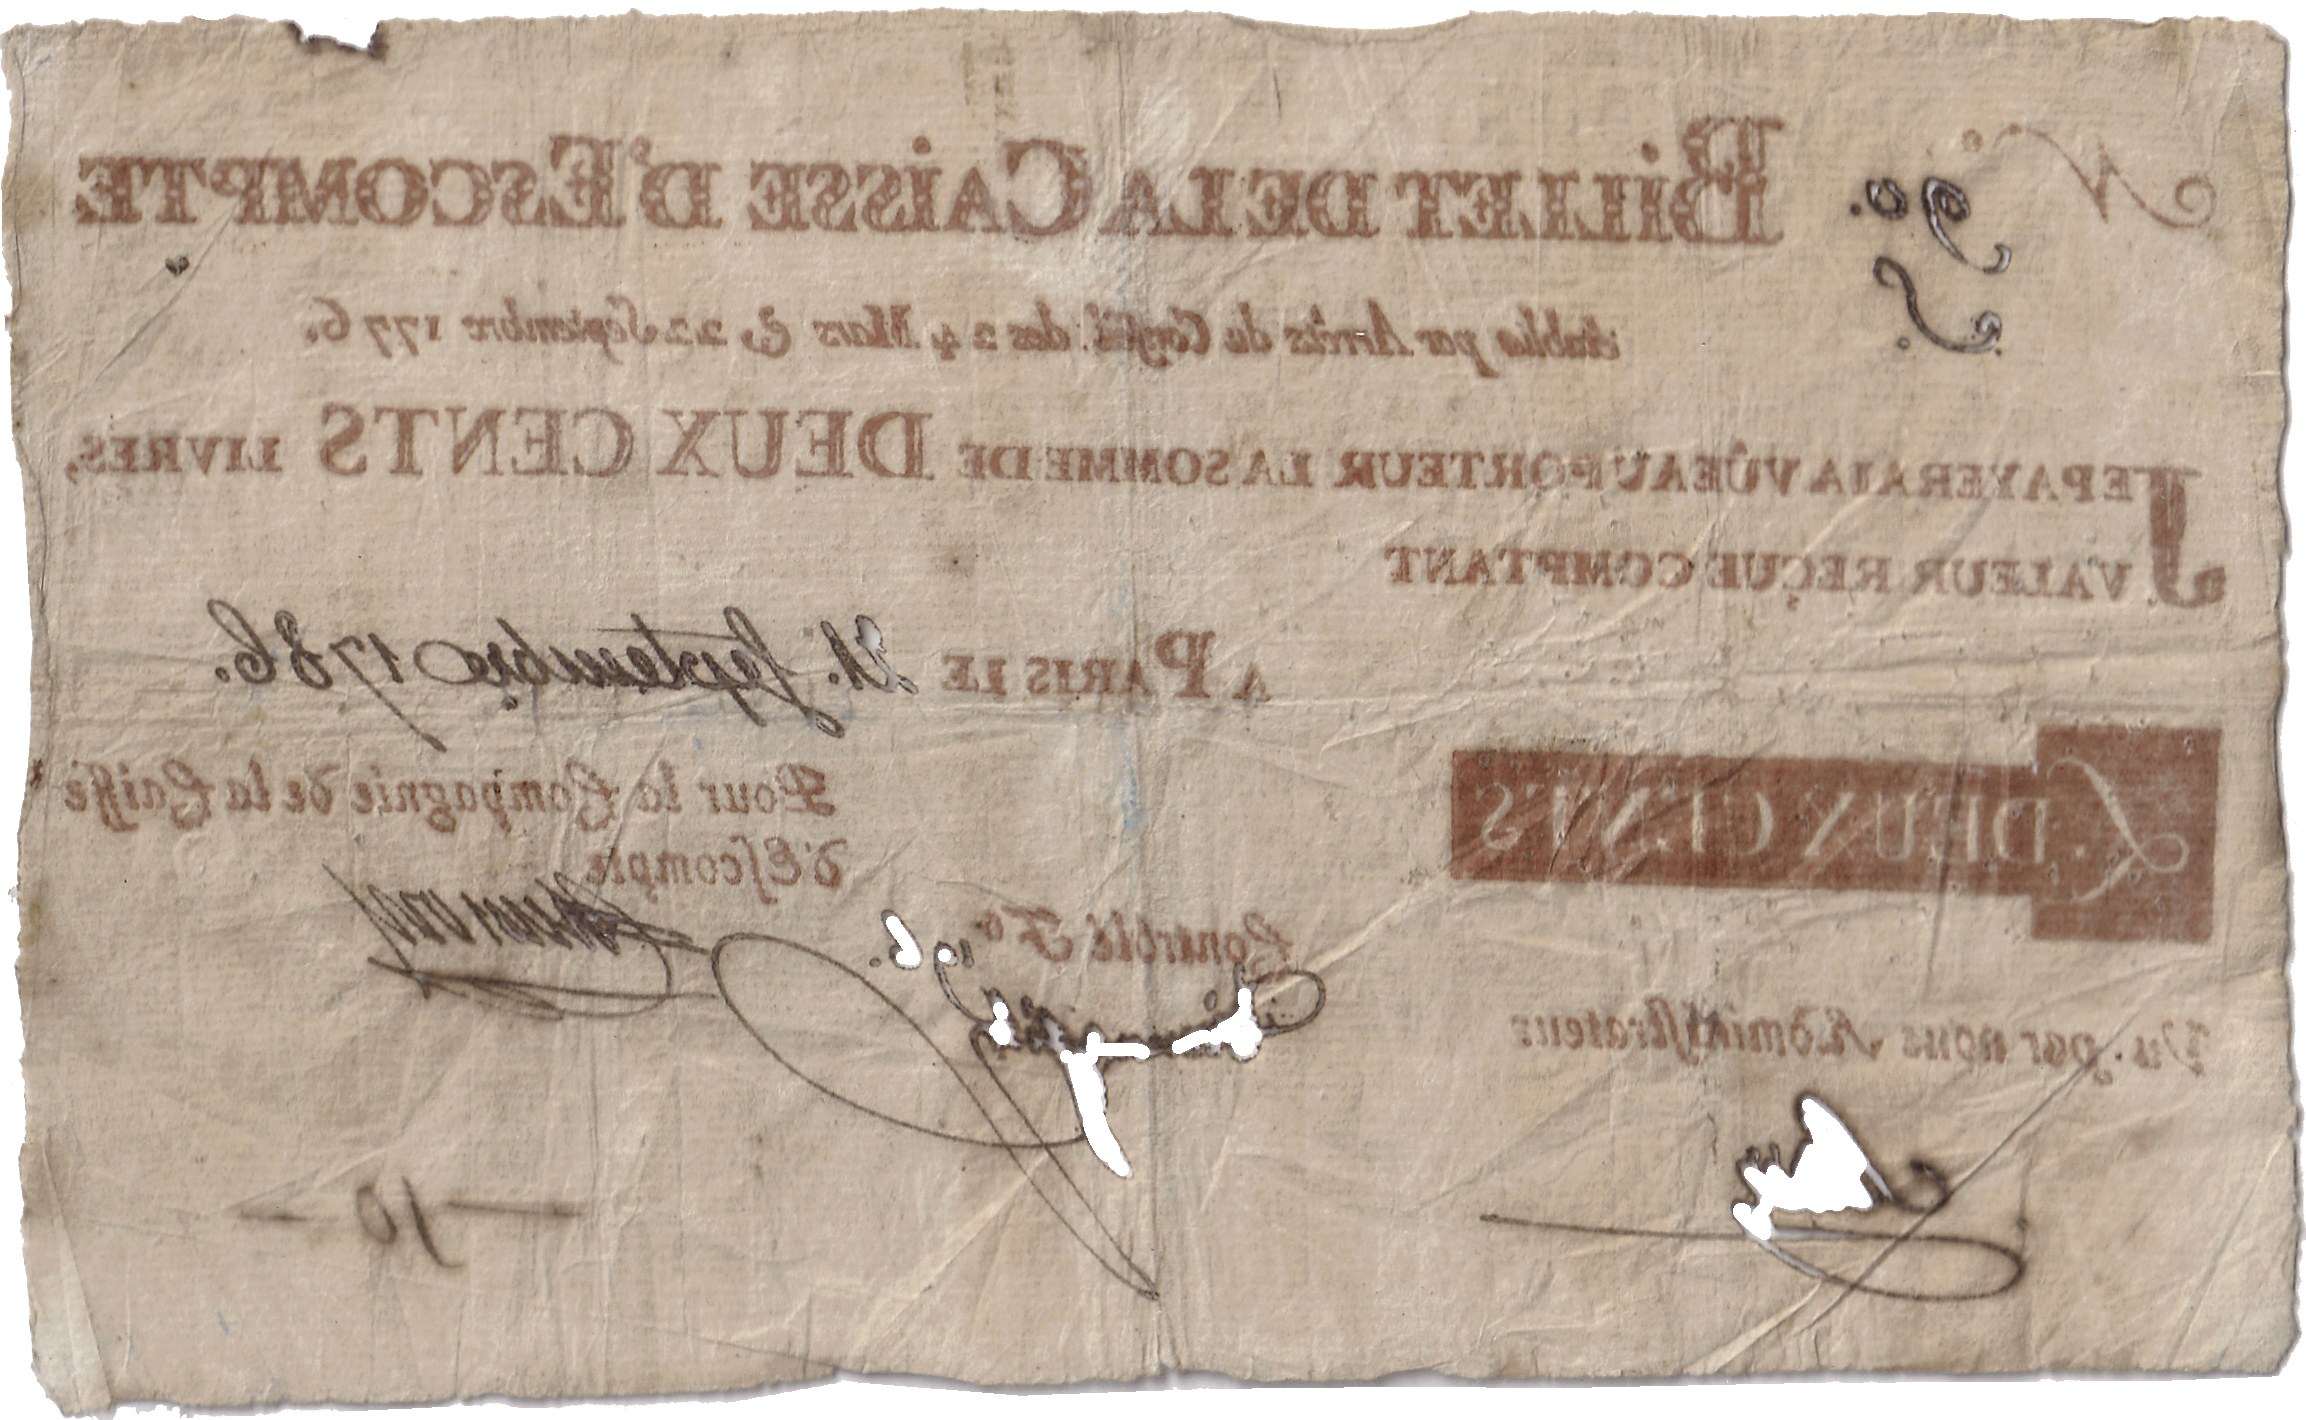 N.
90.
BILLET DE LA CAISSE D'ESCOMPTE
établie par Arrêts du Conseil des 24 Mars & 22 Septembre 1776.
JE PAYERAI A VÛE AU PORTEUR LA SOMME DE DEUX CENTS LIVRES,
VALEUR REÇUE COMPTANT
A PARIS LE 21. Septembre 1786.
L. DEUX CENTS
Pour la Compagnie de la Caisse
d'Escompte
Contrôlé Fo.
Vu par nous Administrateur
— 10 —